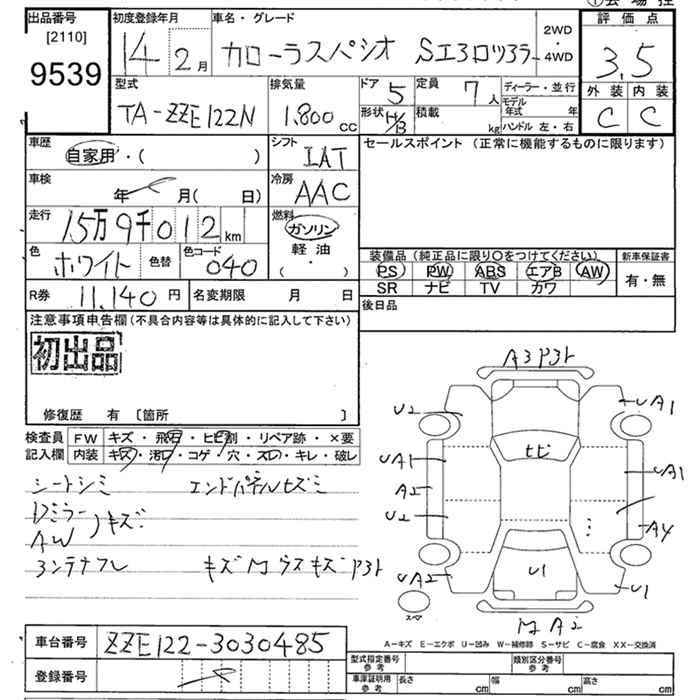 ①会場控
出品番号 初度登録年月 車名・グレード 評価点
[2110] 14 2月 カローラスパシオ 2WD 4WD 3.5
9539
型式 排気量 ドア 5 定員 7人 ディーラー・並行 外装 内装
TA-ZZE122N 1.800cc 形状 積載 kg モデル年式 年 C C
ハンドル 左・右
車歴 シフト セールスポイント (正常に機能するものに限ります)
自家用・( ) IAT
車検 冷房
年 月( 日) AAC
走行 燃料
15万9千012km ガソリン
軽油
色 ホワイト 色替 色コード 040 ( ・ )
装備品(純正品に限り○をつけてください) 新車保証書
PS PW ABS エアB AW 有・無
SR ナビ TV カワ
R券 11,140円 名変期限 月 日 後日品
注意事項申告欄(不具合内容等は具体的に記入して下さい)
初出品
修復歴 有 [箇所 ]
検査員 FW キズ・飛石・ヒビ割・リペア跡・×要
記入欄 内装 キズ・汚レ・コゲ・穴・スレ・キレ・破レ
シートシミ エンドパネルヒズミ
Dミラー
AW キズ
A3P3ト
U2 UA1
ヒビ
UA1 UA1
A2
U2 A4
UA2 U1 U1
スペア
A2
A-キズ E-エクボ U-凹み W-補修跡 S-サビ C-腐食 XX-交換済
車台番号 ZZE122-3030485
登録番号
型式指定番号 参考 類別区分番号 参考
車庫証明用 参考 長さ cm 幅 cm 高さ cm